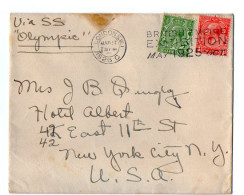 Via SS
"Olympic"
LONDON
1925
BRITISH EMPIRE
EXHIBITION
MAY 1925 OCT
Mrs J B Dingley
Hotel Albert
42 East 11th St
42
New York City N.Y.
U.S.A.